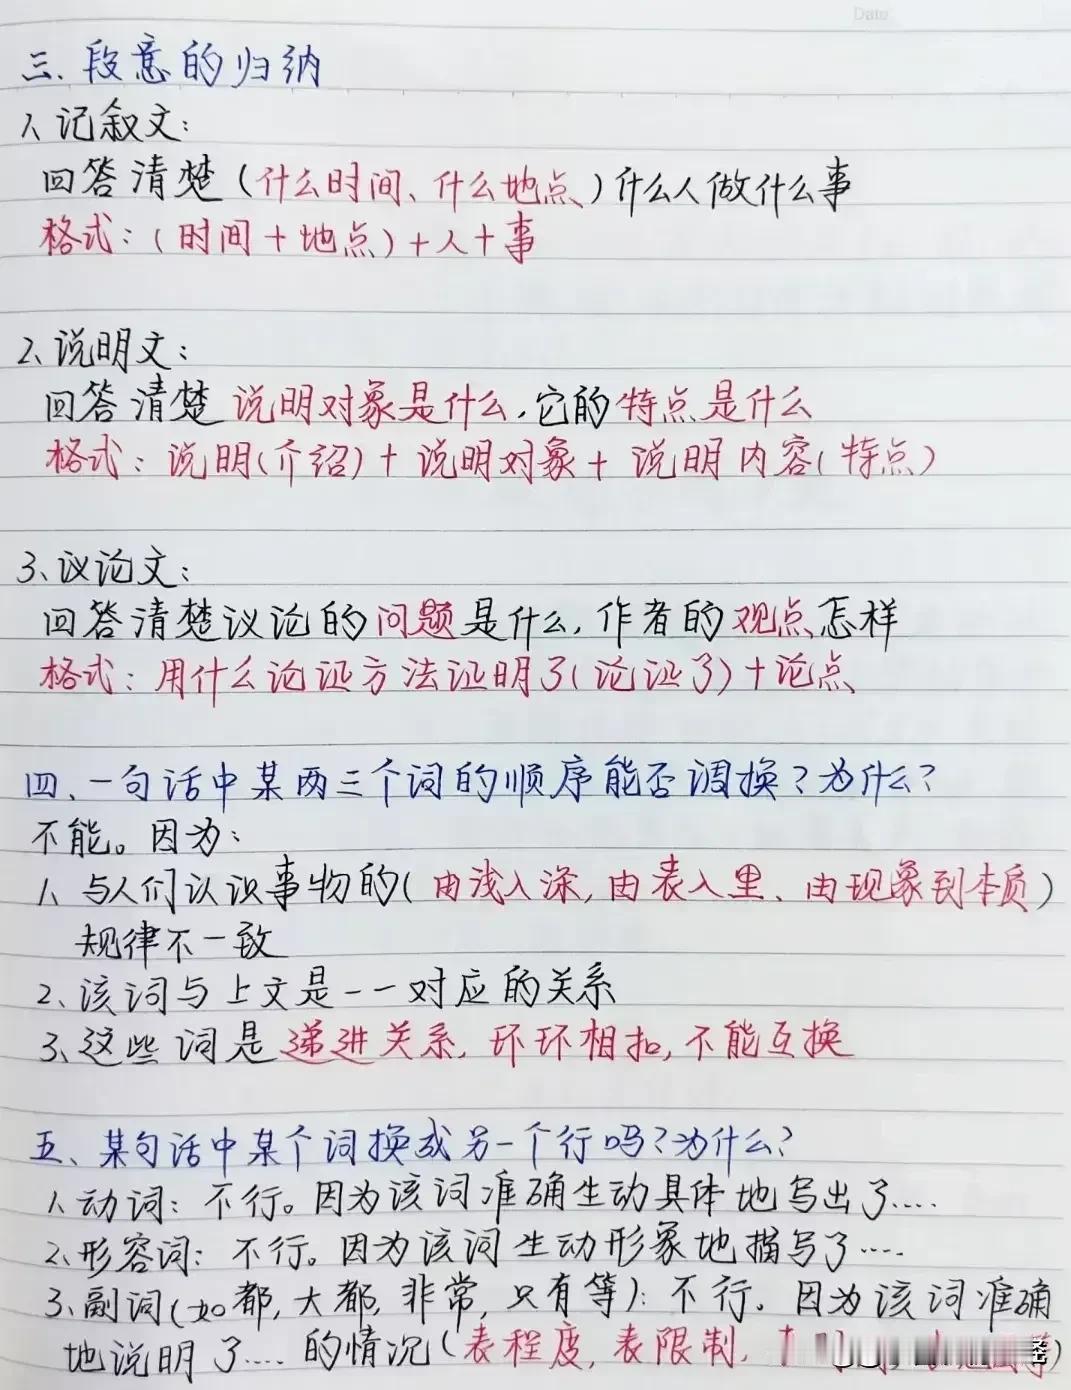 Date
三、段意的归纳
1、记叙文：
回答清楚（什么时间、什么地点）什么人做什么事
格式：（时间＋地点）＋人＋事
2、说明文：
回答清楚说明对象是什么，它的特点是什么
格式：说明（介绍）＋说明对象＋说明内容（特点）
3、议论文：
回答清楚议论的问题是什么，作者的观点怎样
格式：用什么论证方法证明了（论证了）＋论点
四、一句话中某两三个词的顺序能否调换？为什么？
不能。因为：
1、与人们认识事物的（由浅入深，由表入里、由现象到本质）
规律不一致
2、该词与上文是一一对应的关系
3、这些词是递进关系，环环相扣，不能互换
五、某句话中某个词换成另一个行吗？为什么？
1、动词：不行。因为该词准确生动具体地写出了....
2、形容词：不行。因为该词生动形象地描写了....
3、副词（如都，大都，非常，只有等）：不行。因为该词准确
地说明了....的情况（表程度，表限制，